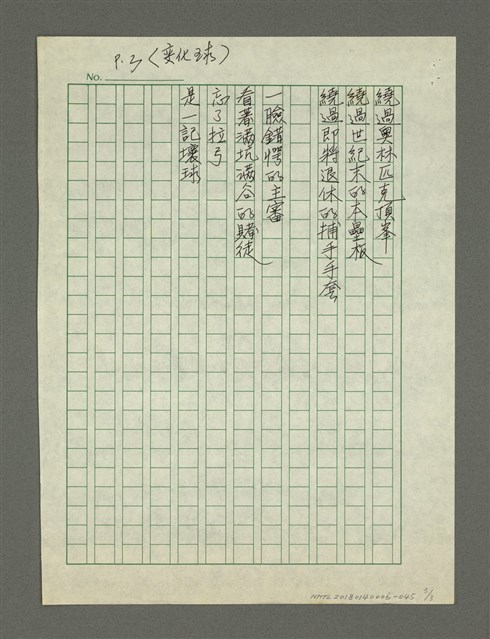 P.3(变化球)
No.
繞過奧林匹克頂峯
繞過世紀末的本壘板
繞過即將退休的捕手手套
一臉錯愕的主審
看著滿坑滿谷的賭徒
忘了拉弓
是一記壞球
NMTL20180140006-045 3/3